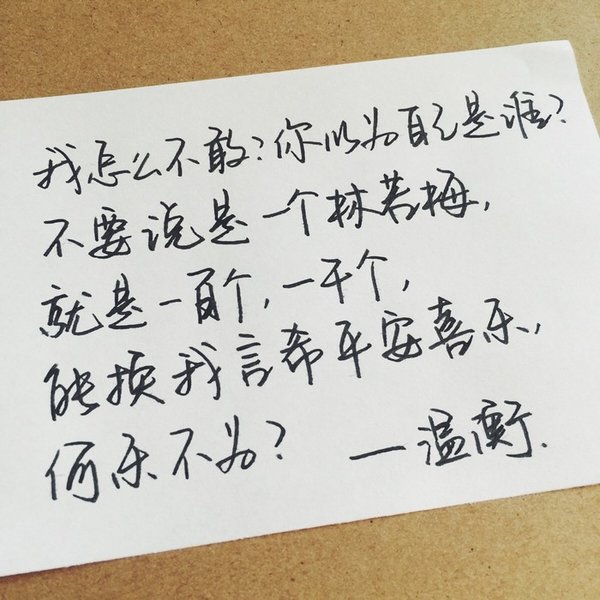 我怎么不敢?你以为自己是谁?
不要说是一个林若梅,
就是一百个,一千个,
能换我言希平安喜乐,
何乐不为? —温衡.